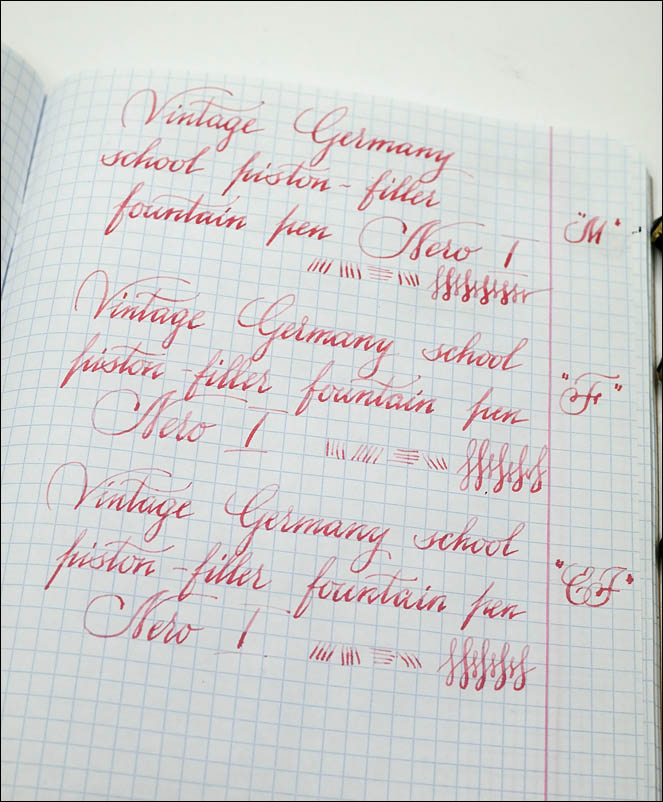 Vintage Germany
school piston-filler
fountain pen Nero I
"M"
Vintage Germany school
piston-filler fountain pen
"F"
Nero I
Vintage Germany school
piston-filler fountain pen
"EF"
Nero I